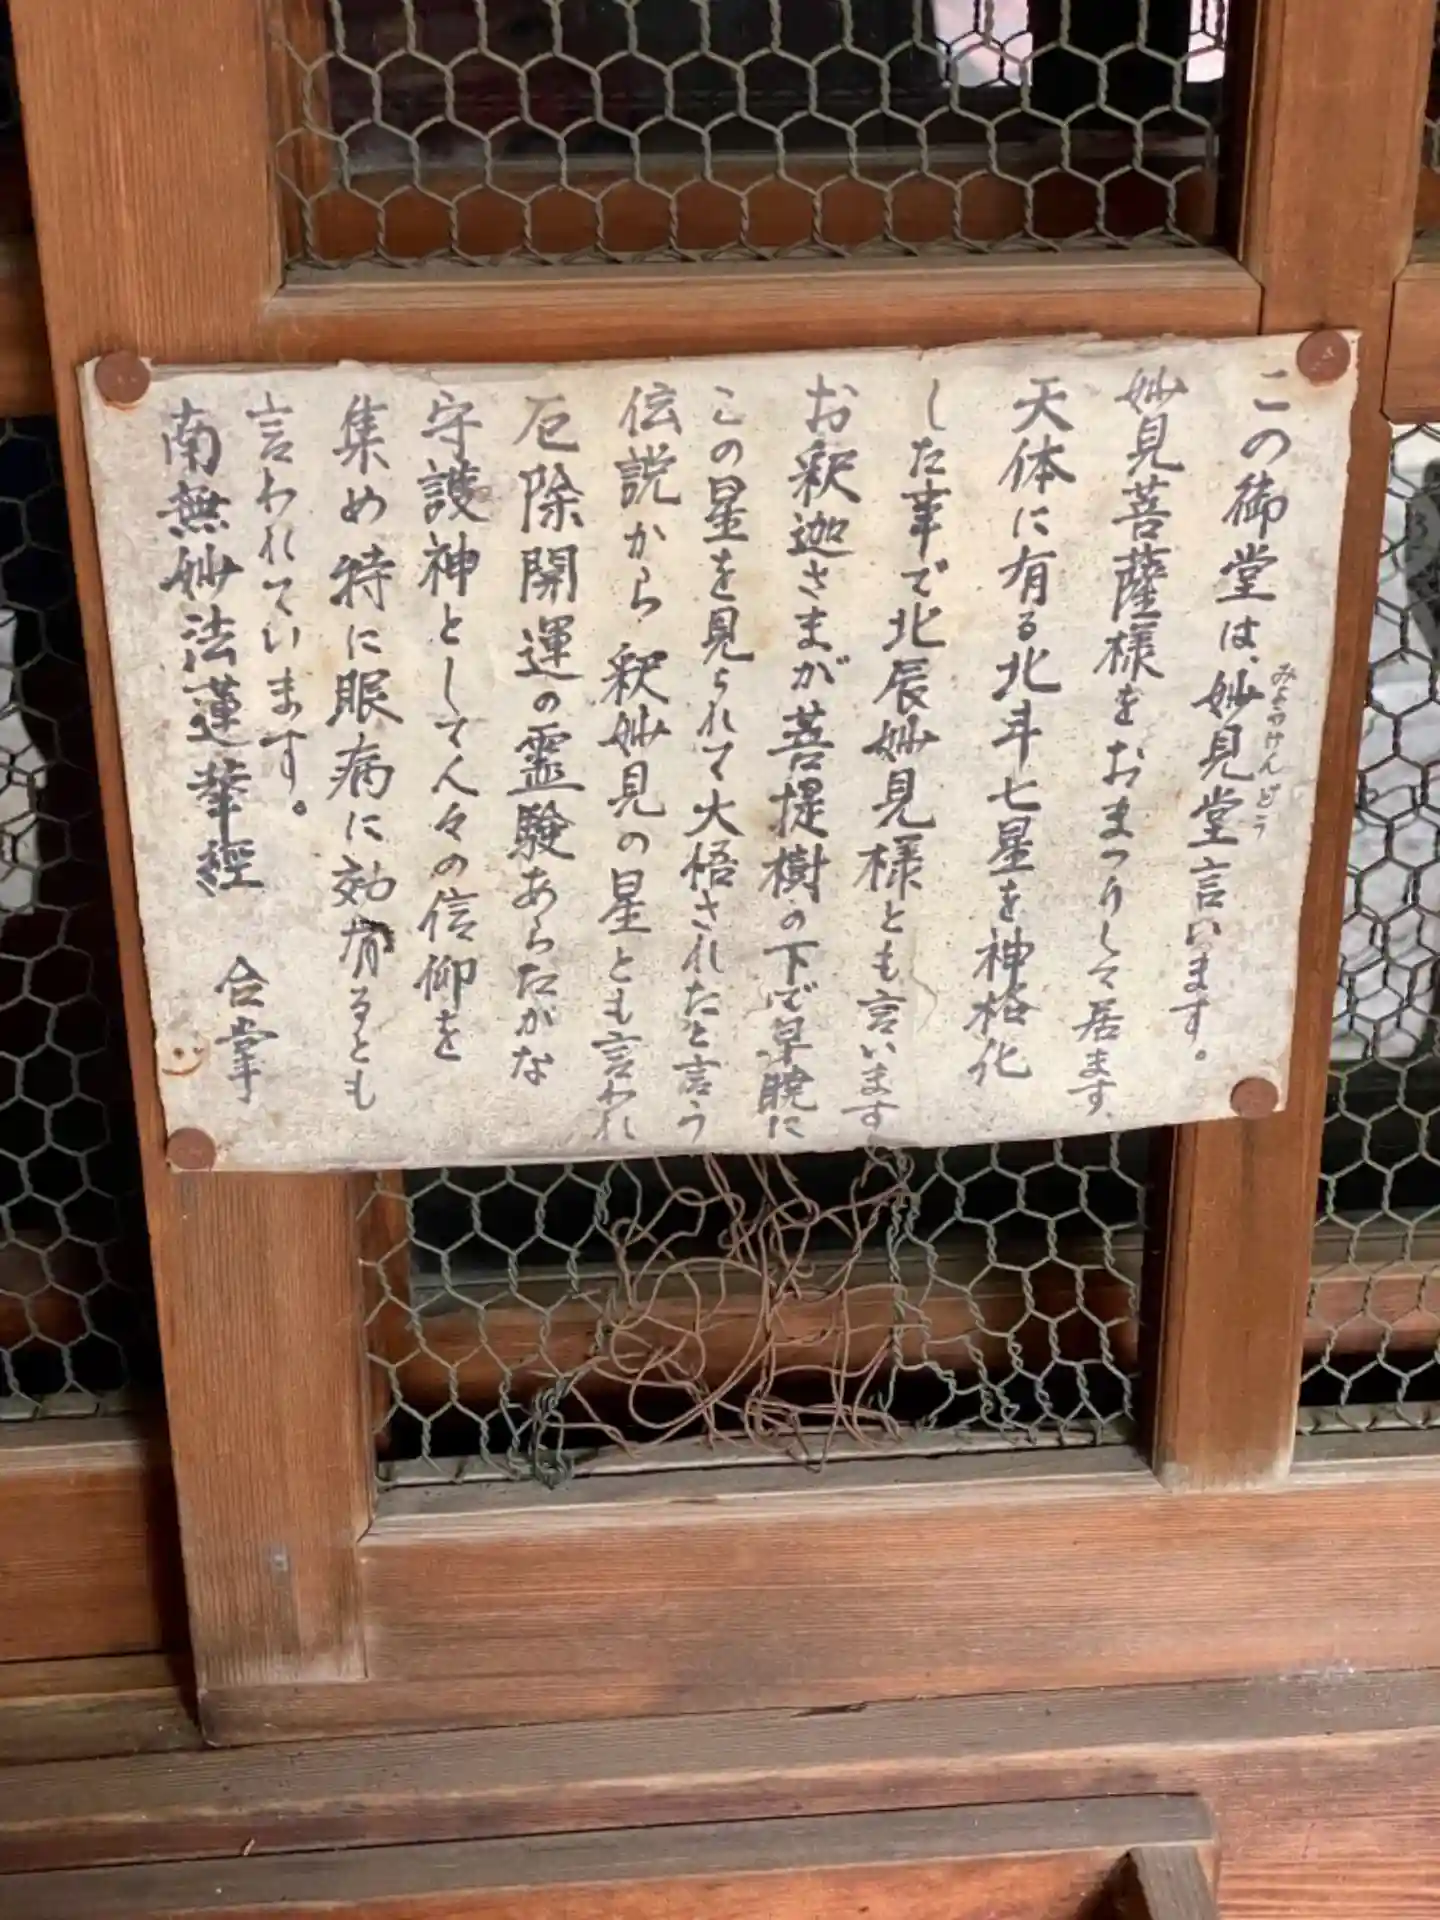 この御堂は、妙見堂言います。
みようけんどう
妙見菩薩様をおまつりして居ます。
天体に有る北斗七星を神格化
した事で北辰妙見様とも言います
お釈迦さまが菩提樹の下で早暁に
この星を見られて大悟されたと言う
伝説から釈妙見の星とも言われ
厄除開運の霊験あらたがな
守護神として人々の信仰を
集め特に眼病に効有るとも
言われています。
南無妙法蓮華經 合掌